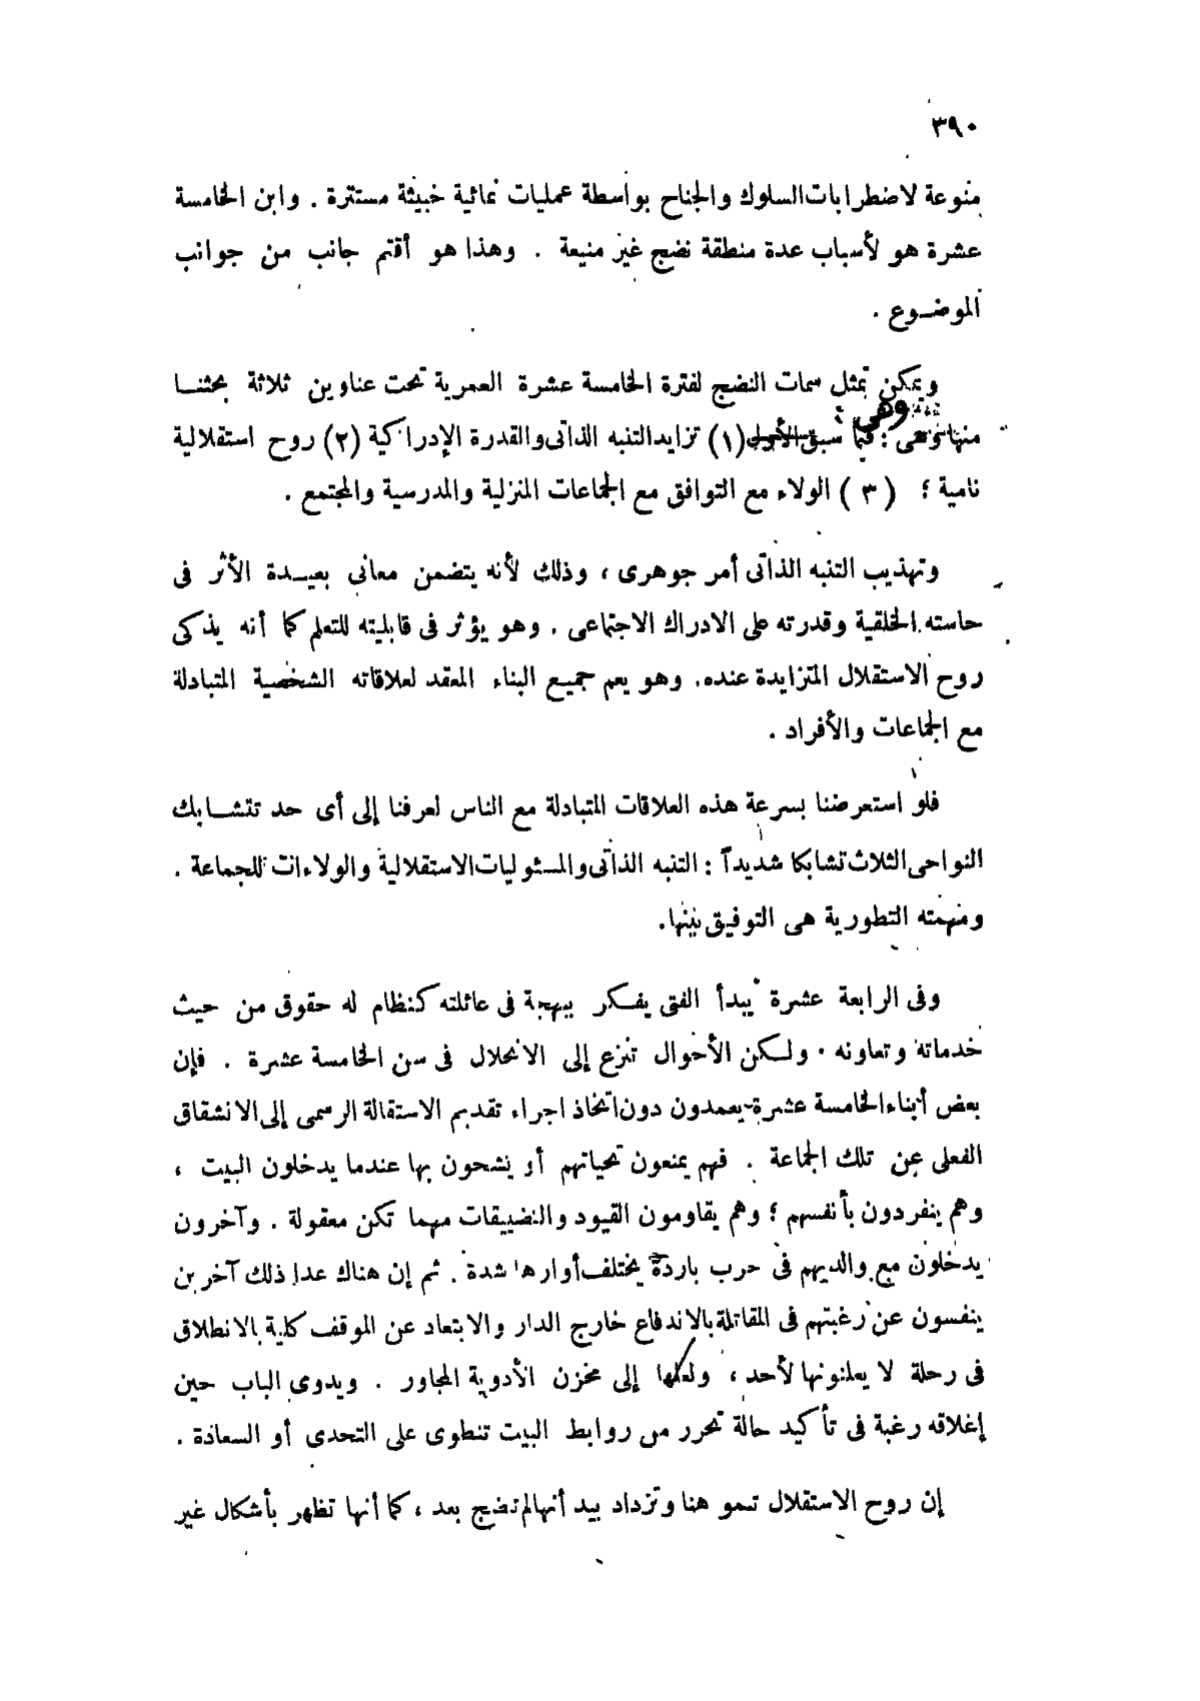 ٣٩٠
منوعة لاضطرابات السلوك والجناح بواسطة عمليات نمائية خبيثة مستترة . وابن الخامسة
عشرة هو لأسباب عدة منطقة نضج غير منيعة . وهذا هو أقتم جانب من جوانب
الموضوع .
ويمكن تمثل سمات النضج لفترة الخامسة عشرة العمرية تحت عناوين ثلاثة بحثنا
منها وهى : فيما سبق الأول (١) تزايد التنبه الذاتى والقدرة الإدراكية (٢) روح استقلالية
نامية ؛ (٣) الولاء مع التوافق مع الجماعات المنزلية والمدرسية والمجتمع .
وتهذيب التنبه الذاتى أمر جوهرى ، وذلك لأنه يتضمن معانى بعيدة الأثر فى
حاسته الخلقية وقدرته على الادراك الاجتماعى . وهو يؤثر فى قابليته للتعلم كما أنه يذكى
روح الاستقلال المتزايدة عنده . وهو يعم جميع البناء المعقد لعلاقاته الشخصية المتبادلة
مع الجماعات والأفراد .
فلو استعرضنا بسرعة هذه العلاقات المتبادلة مع الناس لعرفنا إلى أى حد تتشابك
النواحى الثلاث تشابكا شديداً : التنبه الذاتى والمسئوليات الاستقلالية والولاءات للجماعة .
ومهمته التطورية هى التوفيق بينها .
وفى الرابعة عشرة يبدأ الفتى يفكر ببهجة فى عائلته كنظام له حقوق من حيث
خدماته وتعاونه . ولكن الأحوال تنزع إلى الانحلال فى سن الخامسة عشرة . فإن
بعض أبناء الخامسة عشرة يعمدون دون اتخاذ اجراء تقديم الاستقالة الرسمى إلى الانشقاق
الفعلى عن تلك الجماعة . فهم يمنعون تحياتهم أو يشحون بها عندما يدخلون البيت ،
وهم ينفردون بأنفسهم ؛ وهم يقاومون القيود والتضييقات مهما تكن معقولة . وآخرون
يدخلون مع والديهم فى حرب باردة يختلف أوارها شدة . ثم إن هناك عدا ذلك آخرين
ينفسون عن رغبتهم فى المقاتلة بالاندفاع خارج الدار والابتعاد عن الموقف كلية بالانطلاق
فى رحلة لا يعلنونها لأحد ، ولعلها إلى مخزن الأدوية المجاور . ويدوى الباب حين
إغلاقه رغبة فى تأكيد حالة تحرر من روابط البيت تنطوى على التحدى أو السعادة .
إن روح الاستقلال تنمو هنا وتزداد بيد أنها لم تنضج بعد ، كما أنها تظهر بأشكال غير